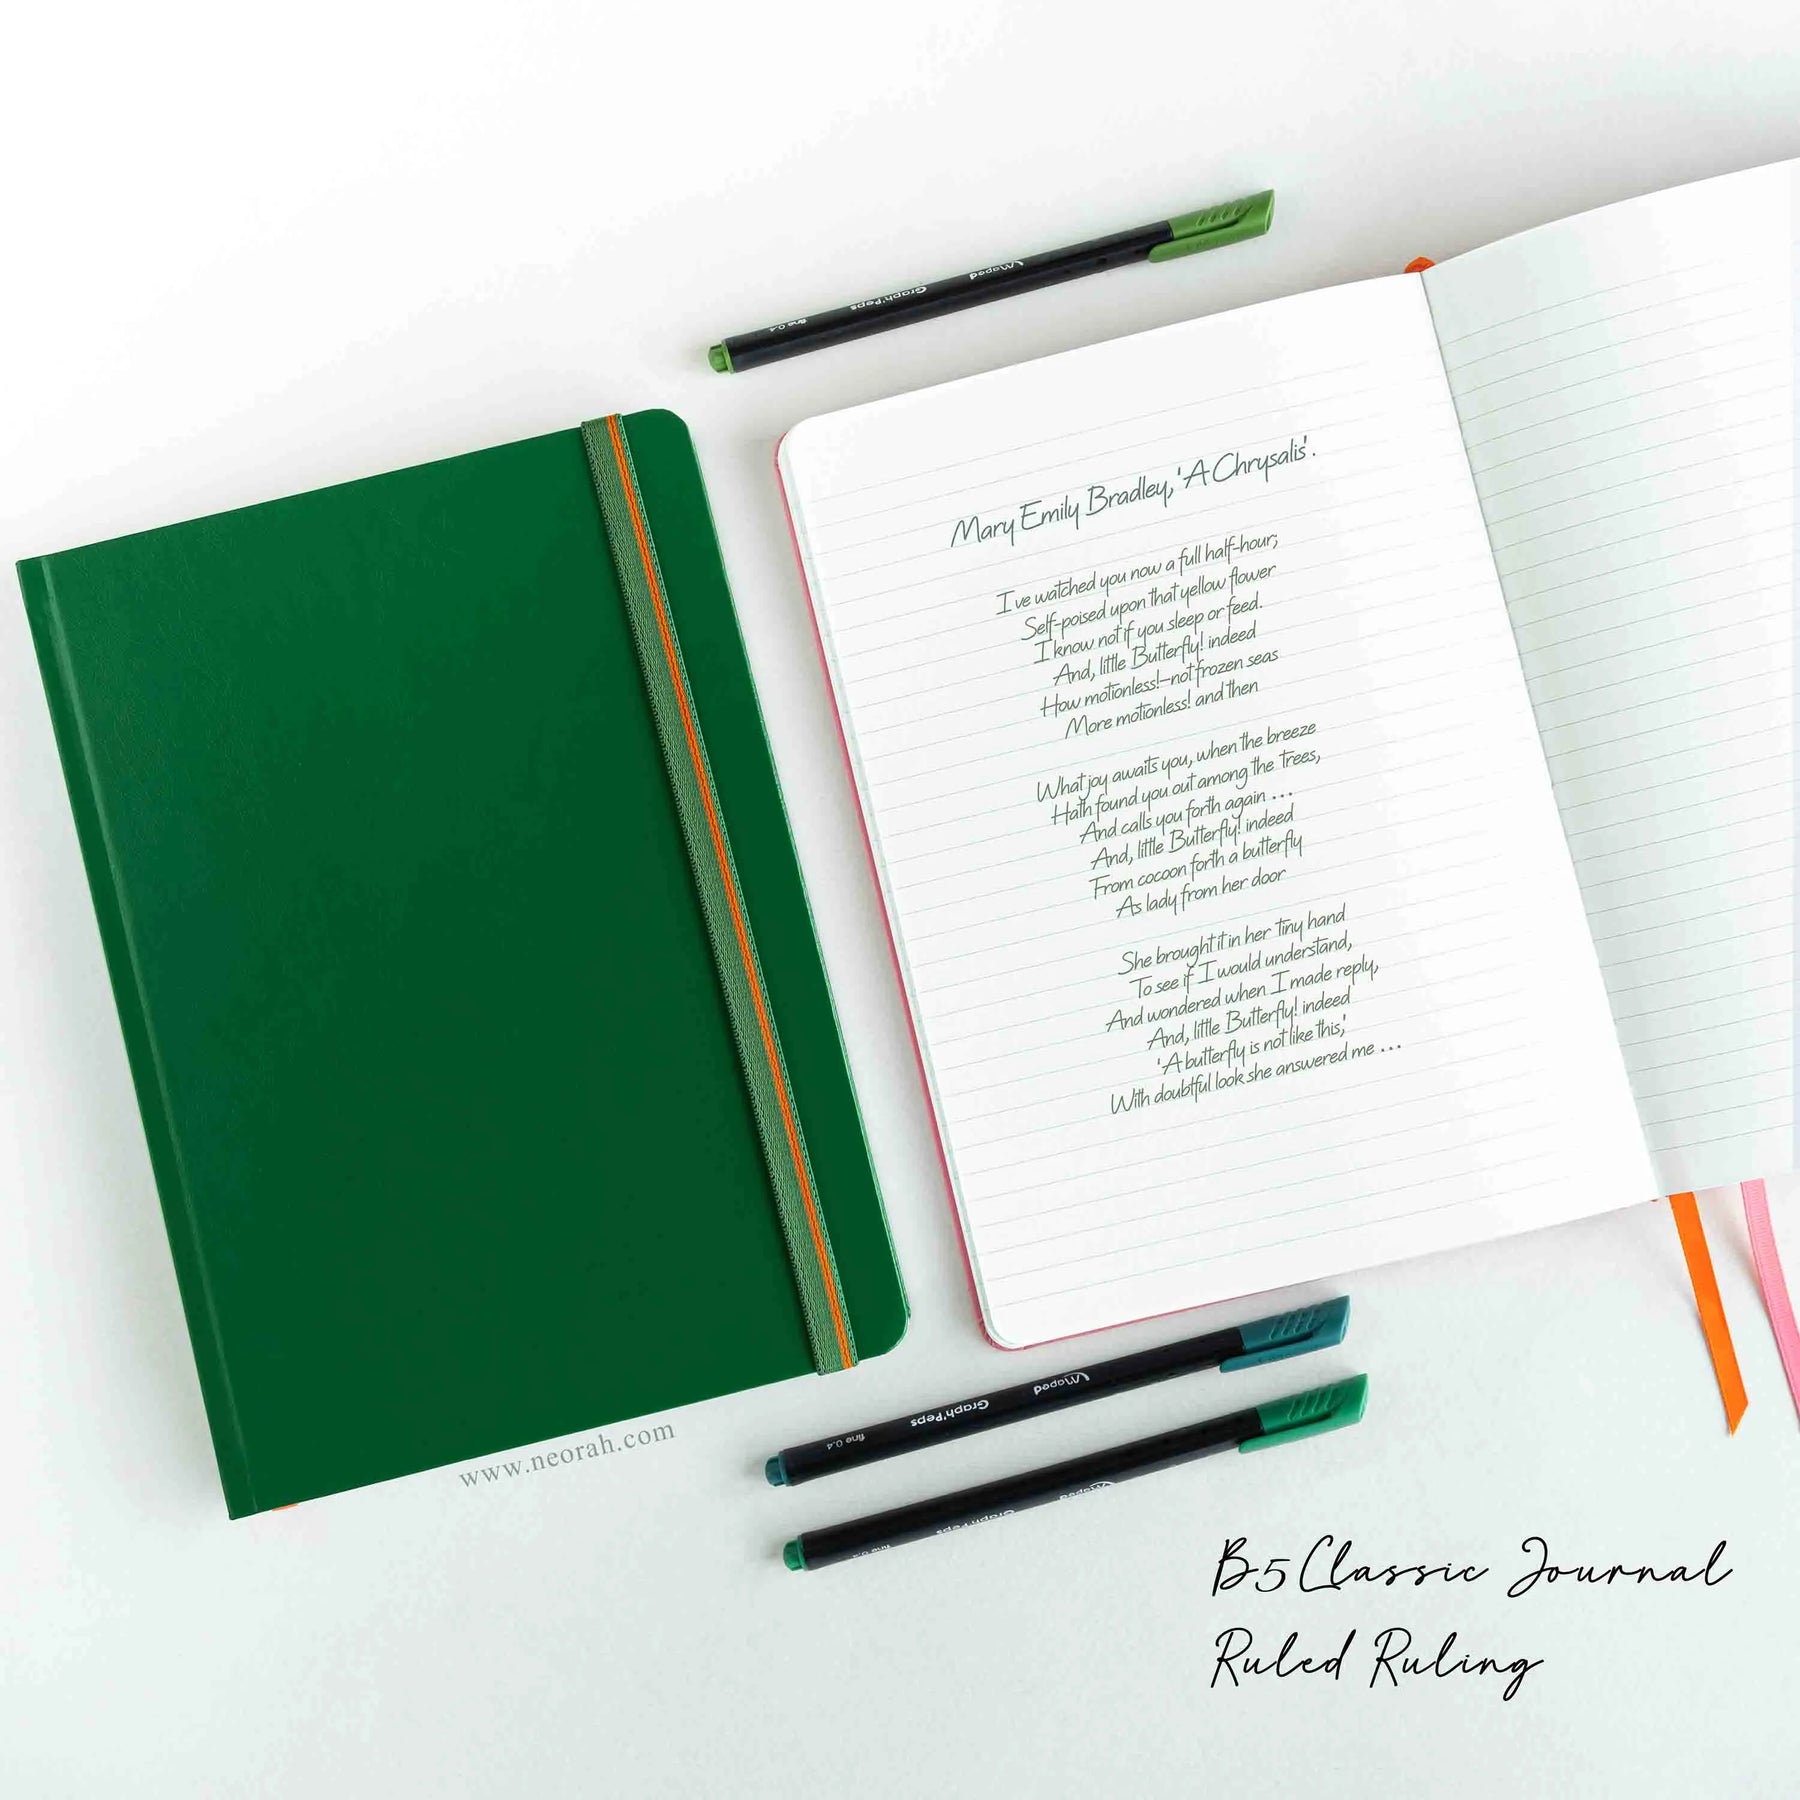 Maped
Graph'Peps
fine 0.4
Mary Emily Bradley, 'A Chrysalis'.
I've watched you now a full half-hour;
Self-poised upon that yellow flower
I know not if you sleep or feed.
And, little Butterfly! indeed
How motionless!—not frozen seas
More motionless! and then
What joy awaits you, when the breeze
Hath found you out among the trees,
And calls you forth again ...
And, little Butterfly! indeed
From cocoon forth a butterfly
As lady from her door
She brought it in her tiny hand
To see if I would understand,
And wondered when I made reply,
And, little Butterfly! indeed
'A butterfly is not like this,'
With doubtful look she answered me ...
Maped
Graph'Peps
fine 0.4
Maped
Graph'Peps
fine 0.4
www.neorah.com
B5 Classic Journal
Ruled Ruling